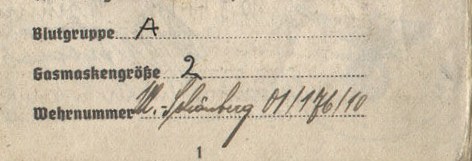 Blutgruppe A
Gasmaskengröße 2
Wehrnummer M.-Schönberg 01/176/10
1